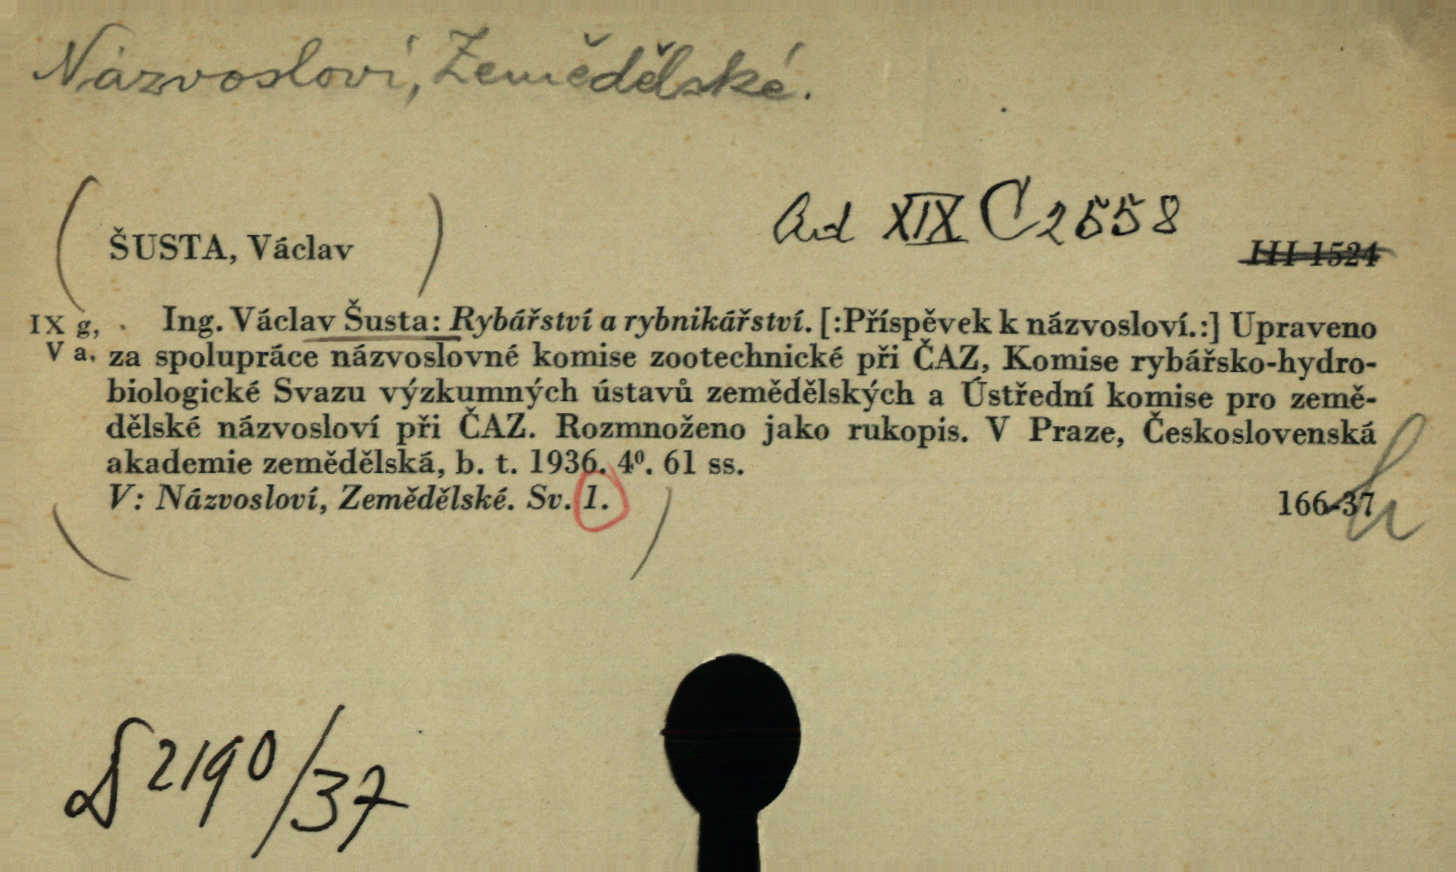 Názvosloví, Zemědělské.
Ad XIX C 2558
ŠUSTA, Václav
III 1524
IX g, Ing. Václav Šusta: Rybářství a rybnikářství. [:Příspěvek k názvosloví.:] Upraveno
V a. za spolupráce názvoslovné komise zootechnické při ČAZ, Komise rybářsko-hydro-
biologické Svazu výzkumných ústavů zemědělských a Ústřední komise pro země-
dělské názvosloví při ČAZ. Rozmnoženo jako rukopis. V Praze, Československá
akademie zemědělská, b. t. 1936. 4⁰. 61 ss.
V: Názvosloví, Zemědělské. Sv. 1.
166-37
2190/37